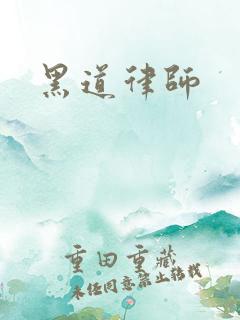 黑道律師
重田重藏
未經同意禁止轉載